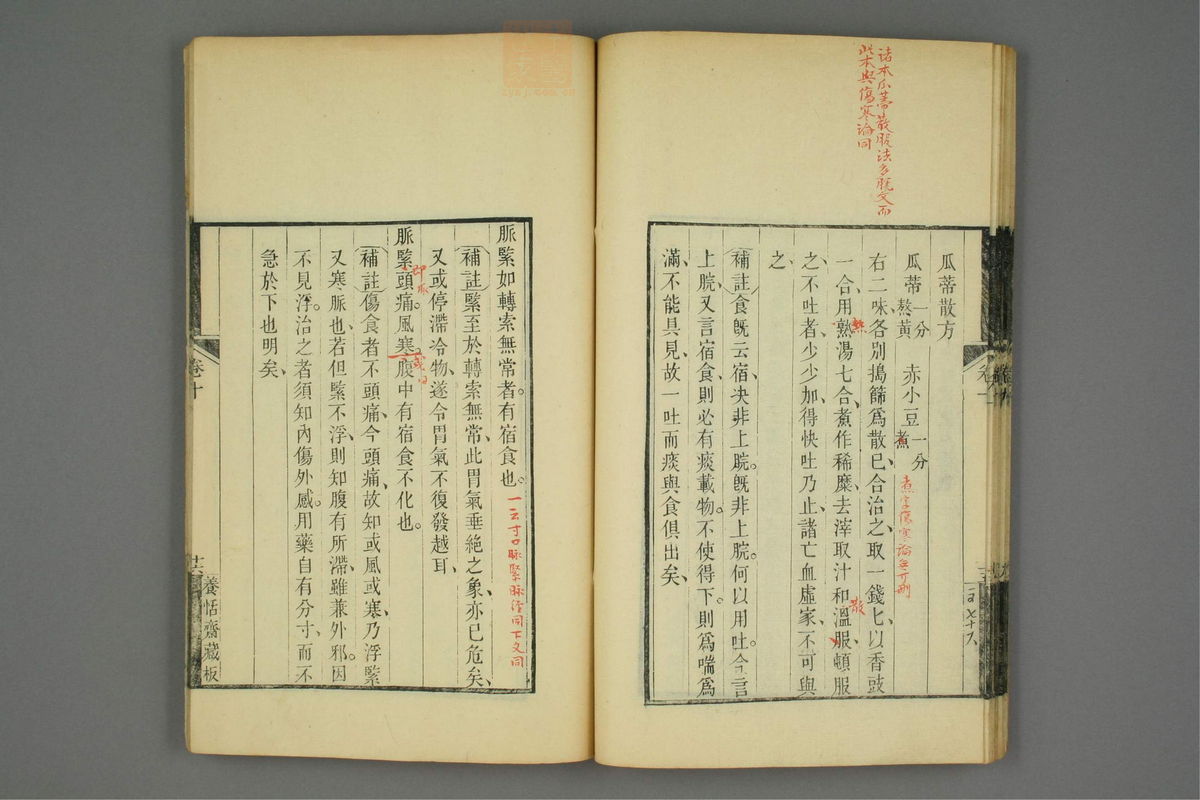 諸本瓜蒂散服法多脫文而
此本與傷寒論同
瓜蒂散方
瓜蒂一分熬黃　赤小豆一分煮
煮字傷寒論無可刪
右二味、各別搗篩爲散已、合治之、取一錢匕、以香豉
一合、用熟湯七合、煮作稀糜、去滓取汁、和溫、服頓服
熱
散
之、不吐者、少少加、得快吐乃止、諸亡血虛家、不可與
之、
補註食旣云宿、決非上脘。旣非上脘。何以用吐。今言
上脘、又言宿食、則必有痰載物。不使得下。則爲喘爲
滿、不能具見、故一吐而痰與食俱出矣、
脈緊如轉索無常者。有宿食也。
一云寸口脈緊
補註緊至於轉索無常、此胃氣垂絶之象、亦已危矣、
又或停滯冷物、遂令胃氣不復發越耳、
脈緊頭痛。風寒。腹中有宿食不化也。
補註傷食者不頭痛、今頭痛、故知或風或寒、乃浮緊
又寒脈也、若但緊不浮、則知腹有所滯、雖兼外邪。因
不見浮。治之者須知內傷外感。用藥自有分寸、而不
急於下也明矣、
卷十
養恬齋藏板